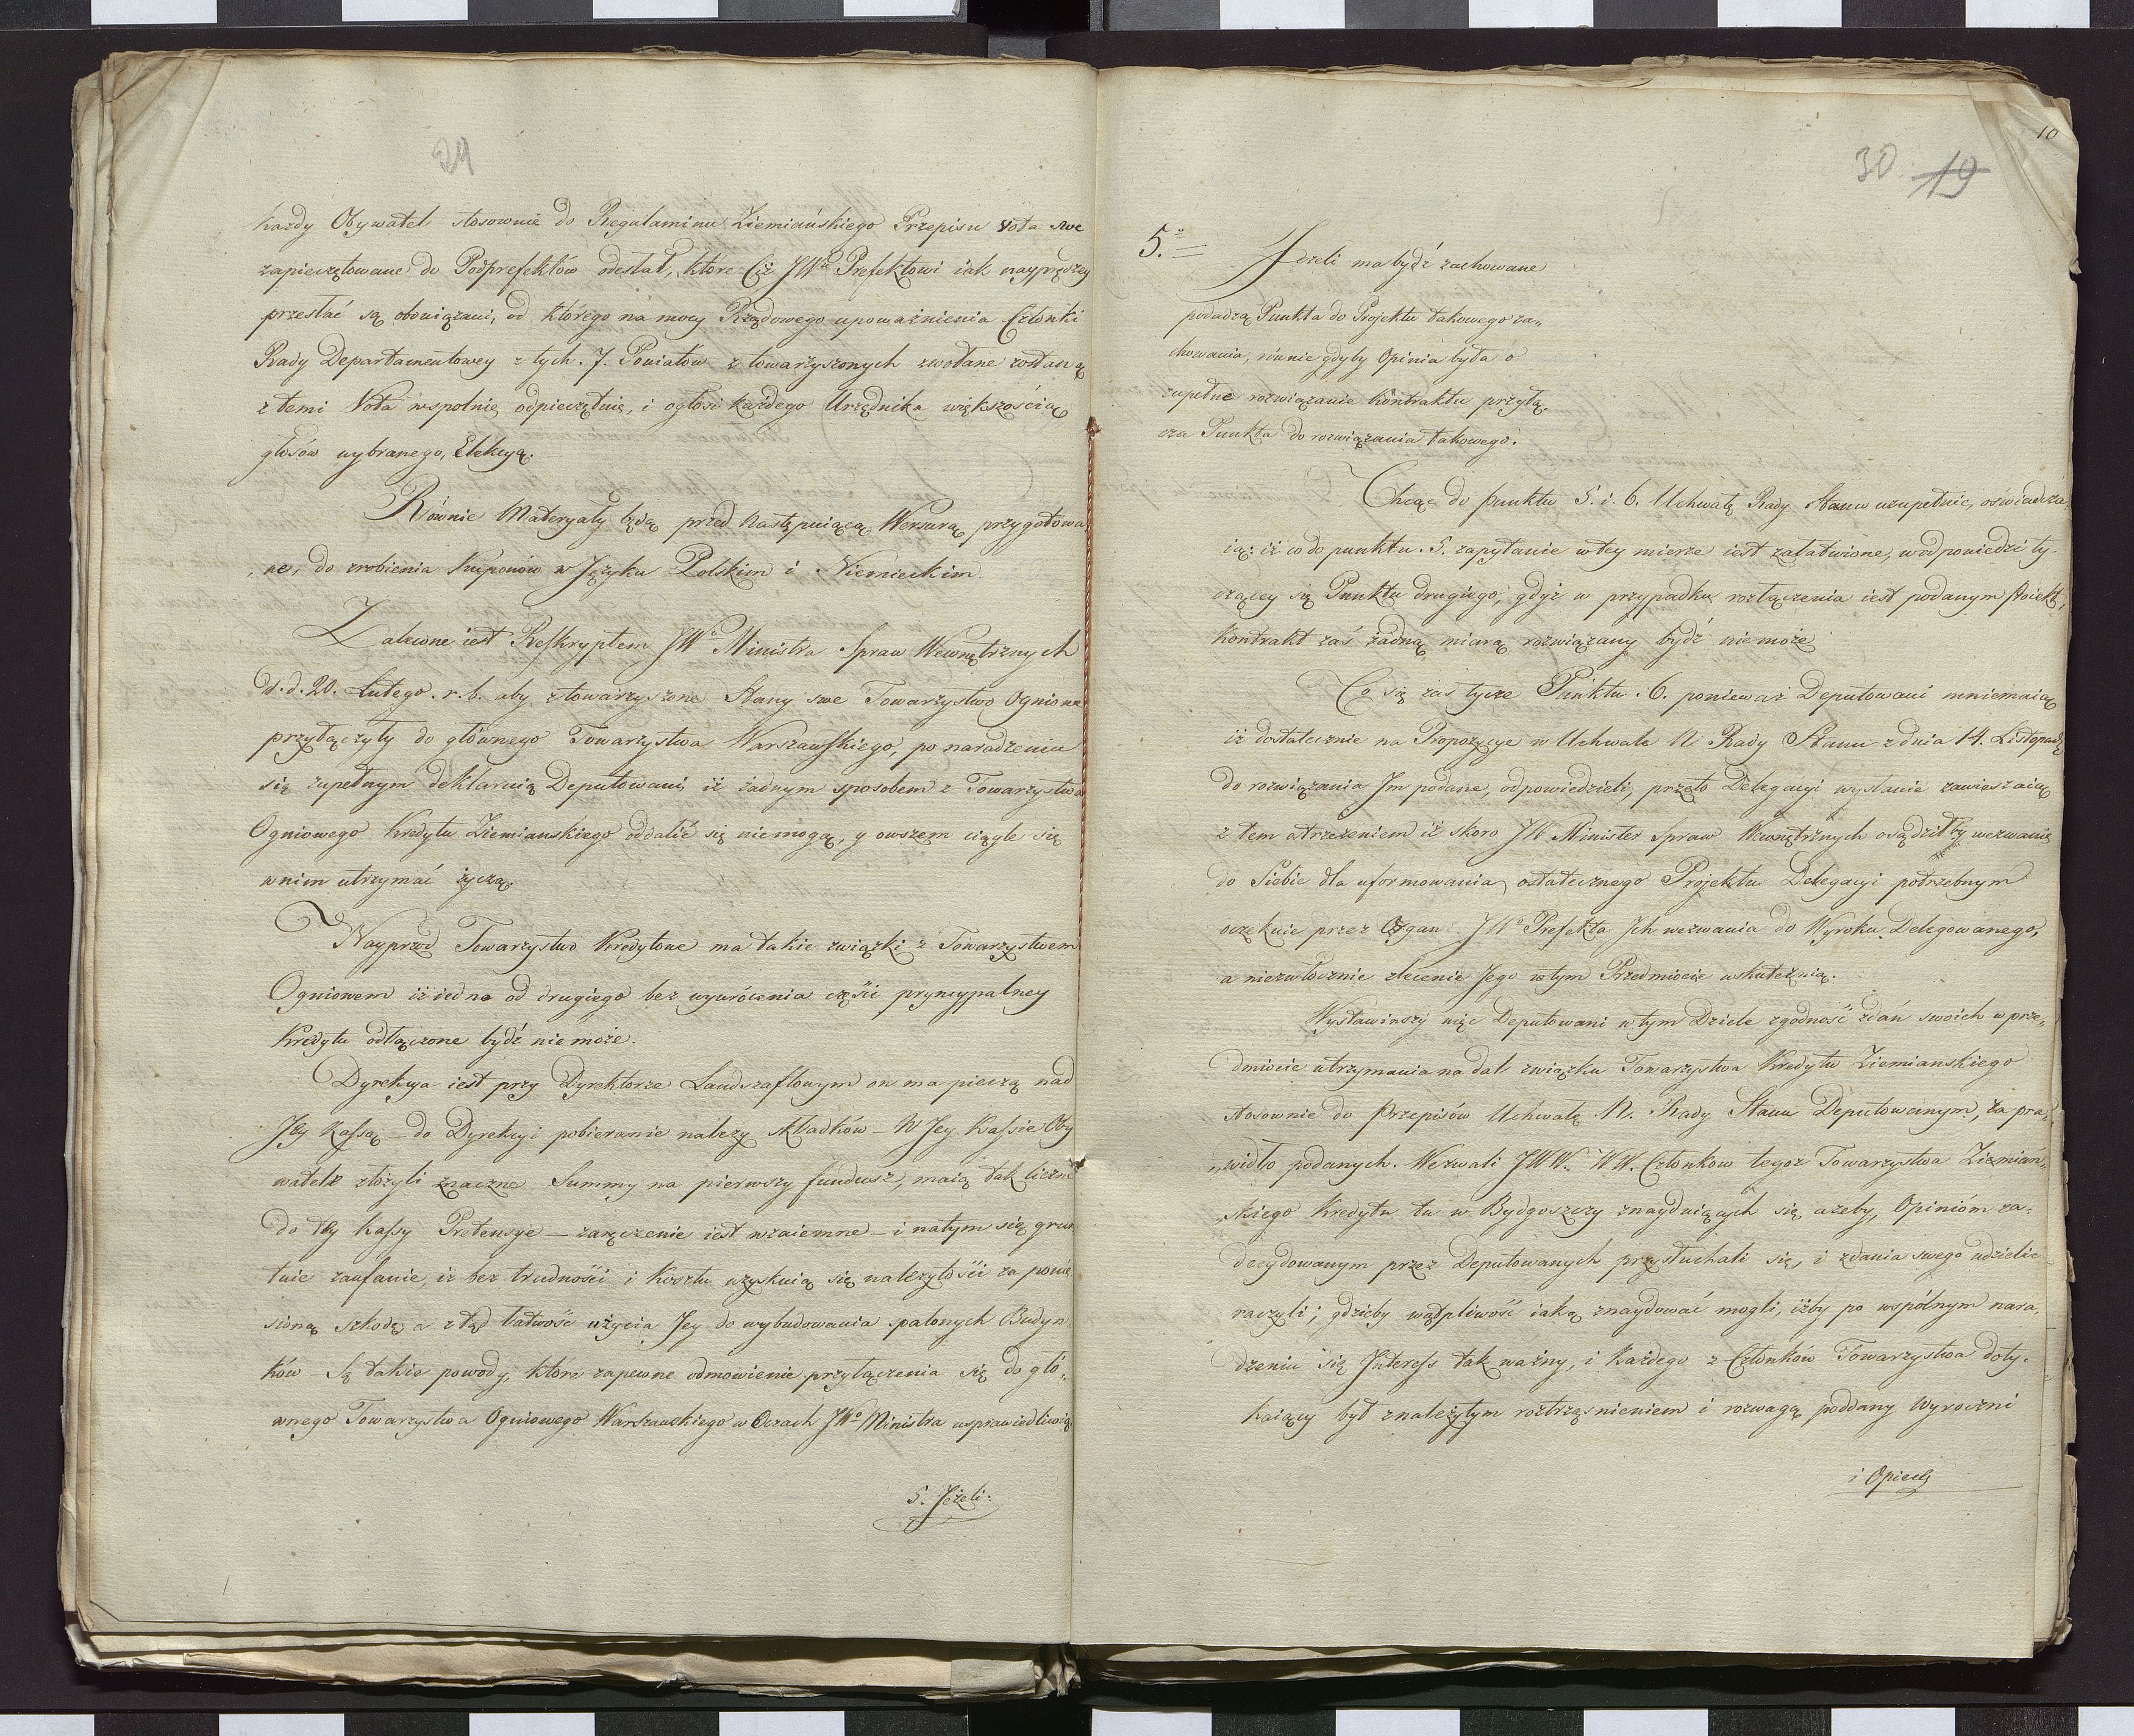 29
każdy Obywatel stosownie do Regulaminu Ziemiańskiego Przepisu Vota swe
zapieczętowane do Podprefektów odesłał, ktore Ciż JWu Prefektowi iak nayprędzey
przesłać są obowiązani, od którego na mocy Rządowego upoważnienia Członki
Rady Departamentowey z tych. 7. Powiatów z towarzyszonych zwołane zostaną
z temi Vota wspolnie odpieczętuie, i ogłosi każdego Urzędnika większością
głosów wybranego, Elekcyą.
Równie Materyały będą przed następuiącą Wersurą przygotowa
„ne, do zrobienia Kuponów w Języku Polskim i Niemieckim.
Zalecone iest Reskryptem JWo Ministra Spraw Wewnętrznych
d. d. 20. Lutego. r. b. aby z towarzyszone Stany swe Towarzystwo Ogniowe
przyłączyły do głównego Towarzystwa Warszawskiego, po naradzeniu
się zupełnym deklaruią Deputowani iż żadnym sposobem z Towarzystwa
Ogniowego Kredytu Ziemianskiego oddalić się niemogą, y owszem ciągle się
w nim utrzymać życzą.
Nayprzód Towarzystwo Kredytowe ma takie związki z Towarzystwem
Ogniowem iż iedno od drugiego bez wywrócenia części pryncypalney
Kredytu odłączone bydź nie może.
Dyrekcya iest przy Dyrektorze Landszaftowym on ma pieczą nad
Jey Kassą – do Dyrekcyi pobieranie należy składków – W Jey Kassie Oby
watele złożyli znaczne Summy na pierwszy fundusz, maią tak liczne
do tey Kassy Pretensye – zaręczenie iest wzaiemne – i natym się grun
tuie zaufanie, iż bez trudności i Kosztu uzyskuią się należytości za ponie
sioną szkodę, a ztąd łatwość użycia Jey do wybudowania spalonych Budyn
ków Są takie powody, ktore zapewne odmowienie przyłączenia się do głó„
wnego Towarzystwa Ogniowego Warszawskiego w Oczach JWo Ministra usprawiedliwią
5. Jeżeli:
10
30 19
5.o Jeżeli ma bydź zachowane
podadzą Punkta do Projektu takowego za„
chowania, równie gdyby Opinia była o
zupełne rozwiązanie Kontraktu przyłą„
cza Punkta do rozwiązania takowego.
Chcąc do punktu 5. i. 6. Uchwałę Rady Stanu uzupełnic, oswiadcza
ią: iż co do punktu. 5. zapytanie w tey mierze iest załatwione, w odpowiedzi ty-
czącey się Punktu drugiego, gdyż w przypadku rozłączenia iest podanym Proiekt,
Kontrakt zaś żadną miarą rozwiązany bydź nie może
Co się zas tycze Punktu. 6. ponieważ Deputowani mniemaią
iż dostatecznie na Propozycye w Uchwale N. Rady Stanu z dnia 14. Listopada
do rozwiązania Jm podane, odpowiedzieli, przeto Delegacyi wysłanie zawieszaią
z tem ostrzeżeniem iż skoro JW Minister Spraw Wewnętrznych osądziłby wezwanie
do Siebie dla uformowania ostatecznego Projektu Delegacyi potrzebnym
oczekuie przez Organ JWo Prefekta Jch wezwania do Wyroku Delegowanego,
a niezwłocznie zlecenie Jego w tym Przedmiocie uskuteznią.
Wystawiwszy więc Deputowani w tym Dziele zgodność zdań swoich w prze„
dmiocie utrzymania na dal związku Towarzystwa Kredytu Ziemianskiego
stosownie do Przepisów Uchwałą N. Rady Stanu Deputowanym, za pra„
„widło podanych. Wezwali JWW. WW. Członkow tegoż Towarzystwa Ziemian„
„skiego Kredytu tu w Bydgoszczy znayduiących się ażeby, Opiniom za„
decydowanym przez Deputowanych przysłuchali się, i zdania swego udzielic
raczyli; gdzieby wątpliwość iaką znaydować mogli, iżby po wspólnym nara„
dzeniu się Interess tak ważny, i każdego z Członków Towarzystwa doty„
kaiący był z należytym roztrząsnieniem i rozwagą poddany Wyroczni
i Opiece